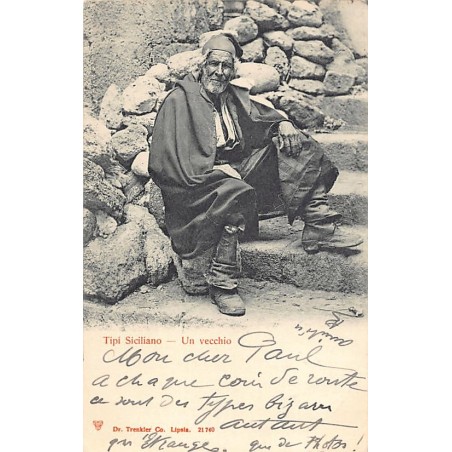 Tipi Siciliano — Un vecchio
Mon cher Paul
a chaque coin de route
ce sont des types bizarres
autant
qu'étrange que de Photos!
Dr. Trenkler Co. Lipsia. 21740